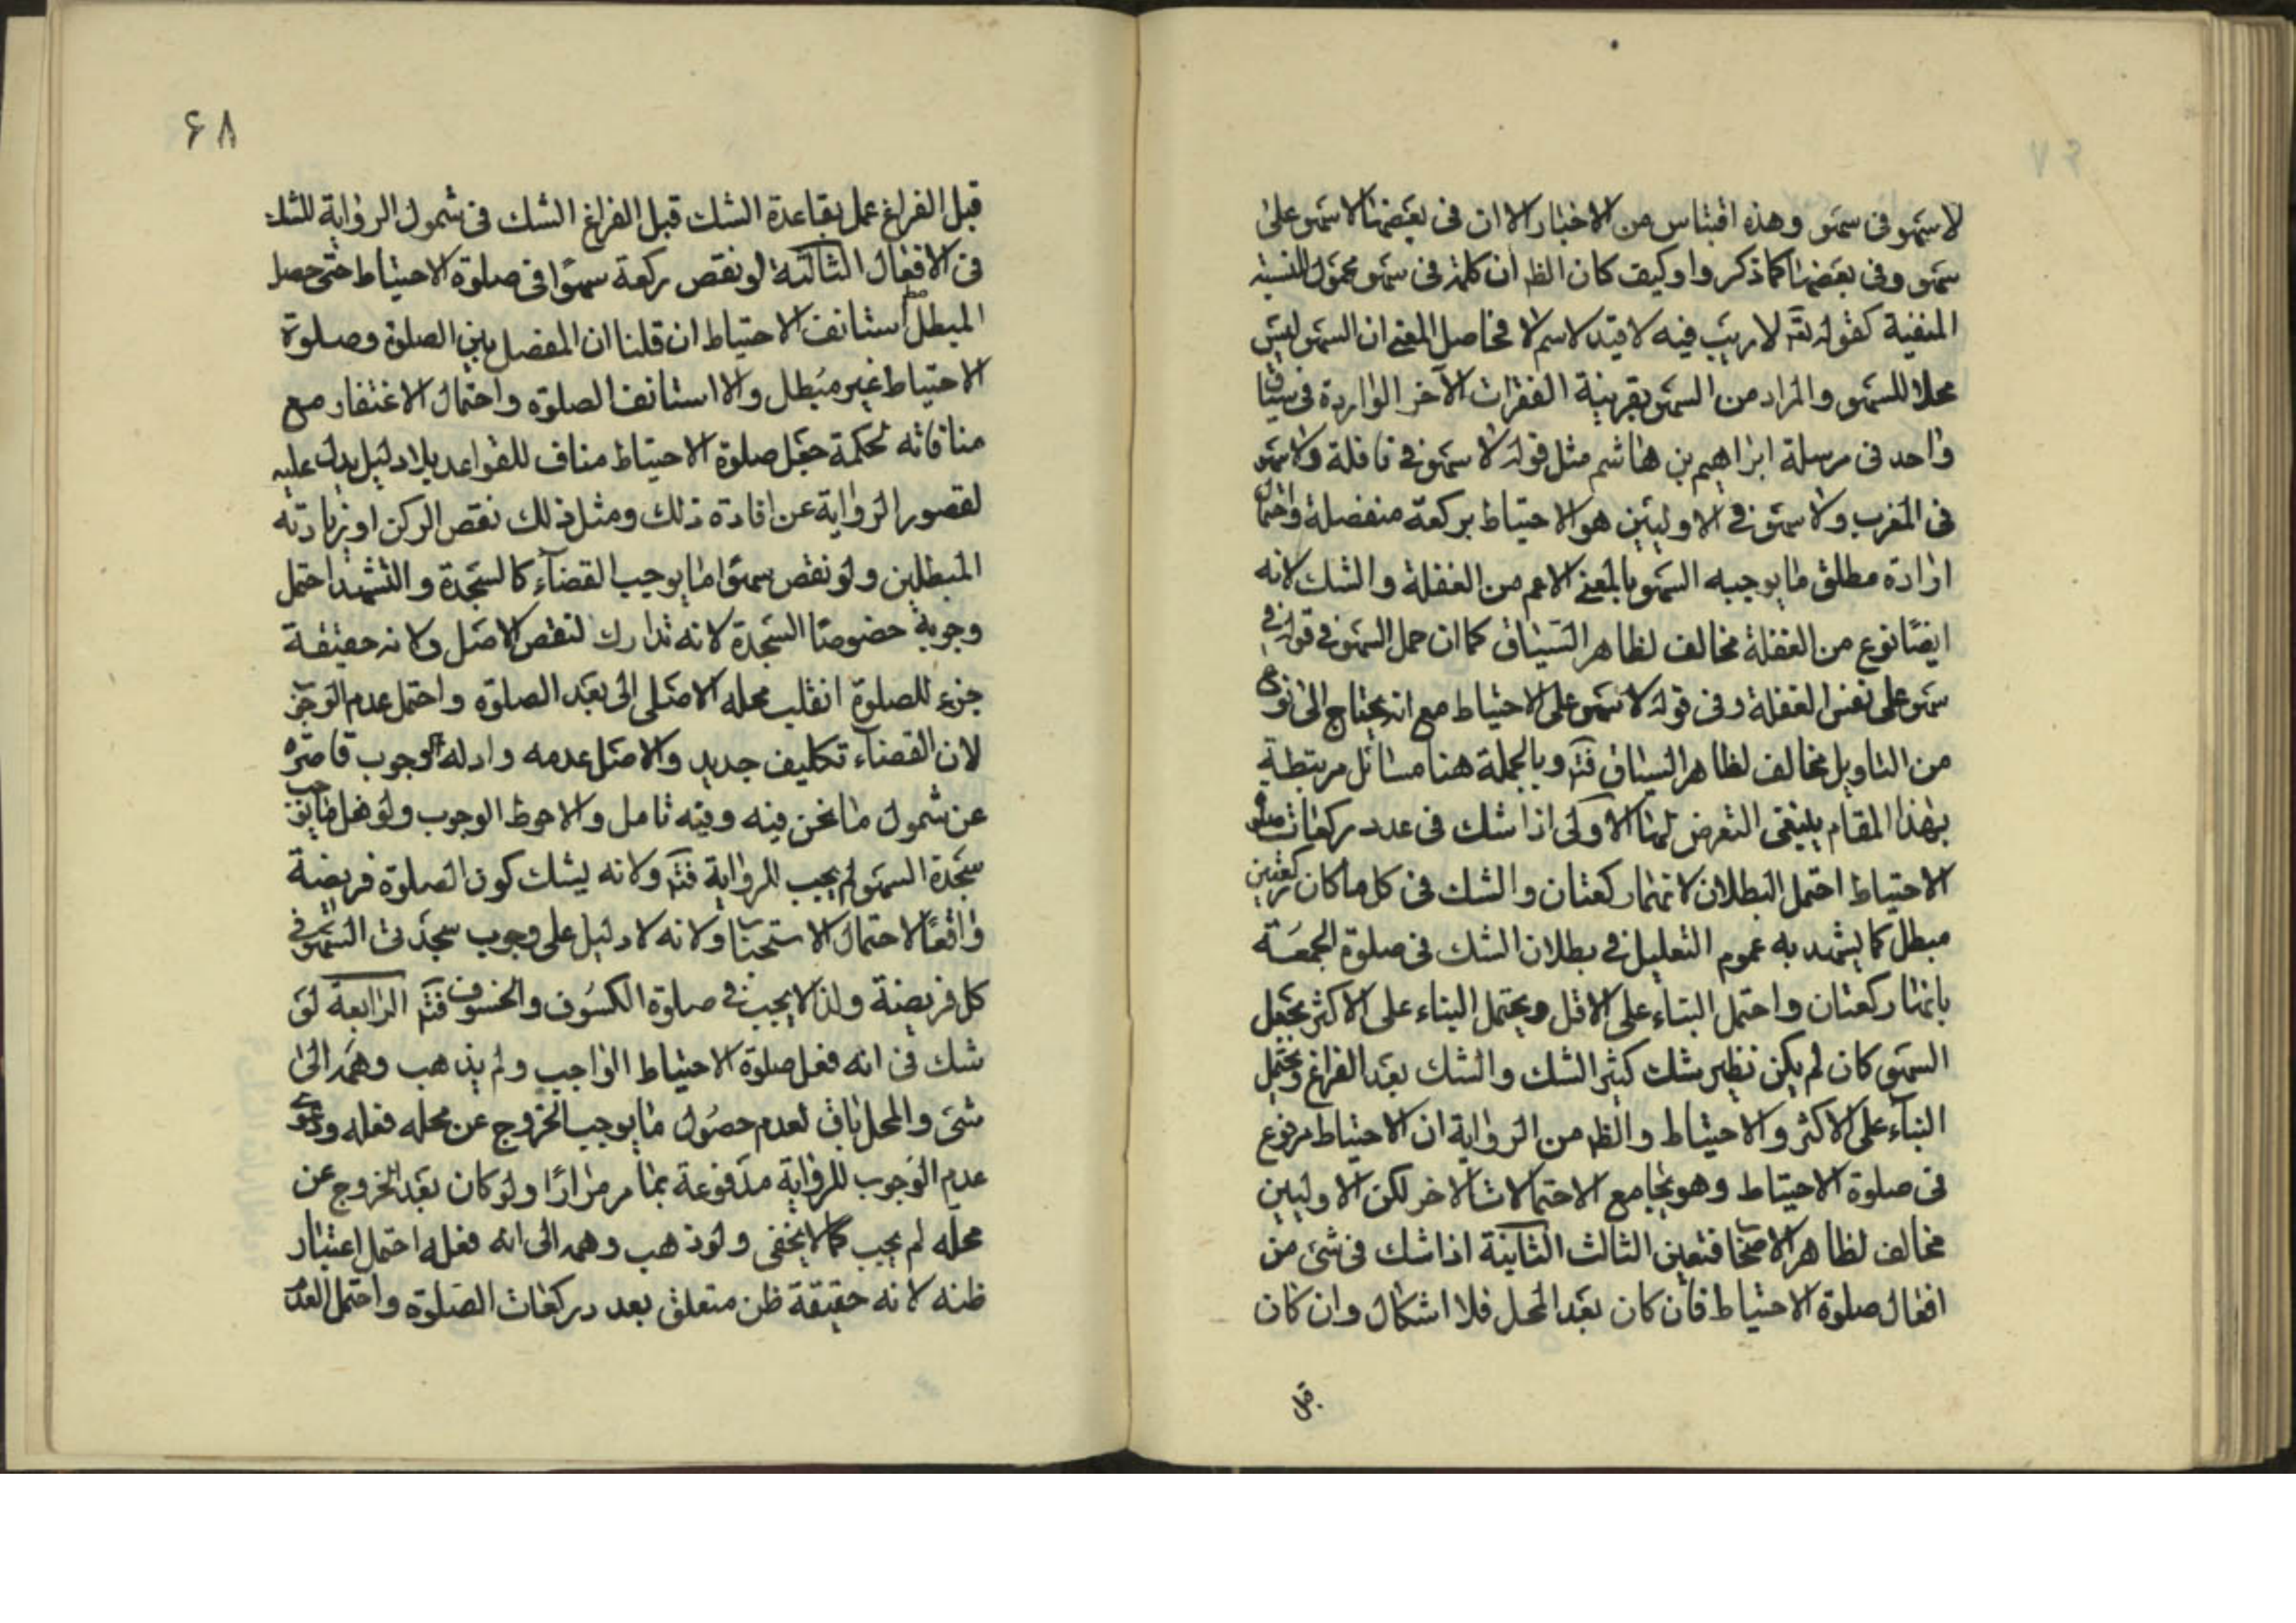 لا سهو فی سهو وهذه اقتباس من الاخبار الا ان فی بعضها لا سهو علی
سهو وفی بعضها کما ذکروا وکیف کان الظ ان کلمة فی سهو محمول للنسبة
المنفیة کقوله تعه لا ریب فیه لا قید لاسم لا فحاصل المعنی ان السهو لیس
محلا للسهو والمراد من السهو بقرینة الفقرات الآخر الواردة فی سیاق
واحد فی مرسلة ابراهیم بن هاشم مثل قوله لا سهو فی نافلة ولا سهو
فی المغرب ولا سهو فی الاولیین هو الاحتیاط برکعة منفصلة واحتمال
ارادة مطلق ما یوجبه السهو بالمعنی الاعم من الغفلة والشک لانه
ایضا نوع من الغفلة مخالف لظاهر السیاق کما ان حمل السهو فی قوله فی
سهو علی نفس الغفلة وفی قوله لا سهو علی الاحتیاط مع انه یحتاج الی نوع
من التاویل مخالف لظاهر السیاق فتم وبالجملة هنا مسائل مرتبطة
بهذا المقام ینبغی التعرض لها الاولی اذا شک فی عدد رکعات صلوة
الاحتیاط احتمل البطلان لانهما رکعتان والشک فی کل ما کان رکعتین
مبطل کما یشهد به عموم التعلیل فی بطلان الشک فی صلوة الجمعة
بانها رکعتان واحتمل البناء علی الاقل ویحتمل البناء علی الاکثر بجعل
السهو کان لم یکن نظیر شک کثیر الشک والشک بعد الفراغ ویحتمل
البناء علی الاکثر والاحتیاط والظ من الروایة ان الاحتیاط مرفوع
فی صلوة الاحتیاط وهو یجامع الاحتمالات الاخر لکن الاولیین
مخالف لظاهر الاصحاب فتعین الثالث الثانیة اذا شک فی شئ من
افعال صلوة الاحتیاط فان کان بعد المحل فلا اشکال وان کان
قبل
۶۸
قبل الفراغ عمل بقاعدة الشک قبل الفراغ الشک فی شمول الروایة للشک
فی الافعال الثالثة لو نقص رکعة سهوا فی صلوة الاحتیاط حتی حصل
المبطل استانف الاحتیاط ان قلنا ان المفصل بین الصلوة وصلوة
الاحتیاط غیر مبطل والا استانف الصلوة واحتمال الاغتفار مع
منافاته لحکمة جعل صلوة الاحتیاط مناف للقواعد بلا دلیل یدل علیه
لقصور الروایة عن افادة ذلک ومثل ذلک نقص الرکن او زیادته
المبطلین ولو نقص سهوا ما یوجب القضاء کالسجدة والتشهد احتمل
وجوبه خصوصا السجدة لانه تدارک لنقص الاصل ولانه حقیقة
جزء للصلوة انقلب محله الاصلی الی بعد الصلوة واحتمل عدم الوجوب
لان القضاء تکلیف جدید والاصل عدمه وادلة الوجوب قاصرة
عن شمول ما نحن فیه وفیه تامل والاحوط الوجوب ولو فعل ما یوجب
سجدة السهو لم یجب للروایة فتم ولانه یشک کون الصلوة فریضة
واقعا لاحتمال الاستحباب ولانه لا دلیل علی وجوب سجدتی السهو فی
کل فریضة ولذا لا یجب فی صلوة الکسوف والخسوف فتم الرابعة لو
شک فی انه فعل صلوة الاحتیاط الواجب ولم یذهب وهمه الی
شئ والمحل باق لعدم حصول ما یوجب الخروج عن محله فعله ودعوی
عدم الوجوب للروایة مدفوعة بما مر مرارا ولو کان بعد الخروج عن
محله لم یجب کما لا یخفی ولو ذهب وهمه الی انه فعله احتمل اعتبار
ظنه لانه حقیقة ظن متعلق بعدد رکعات الصلوة واحتمل العدم